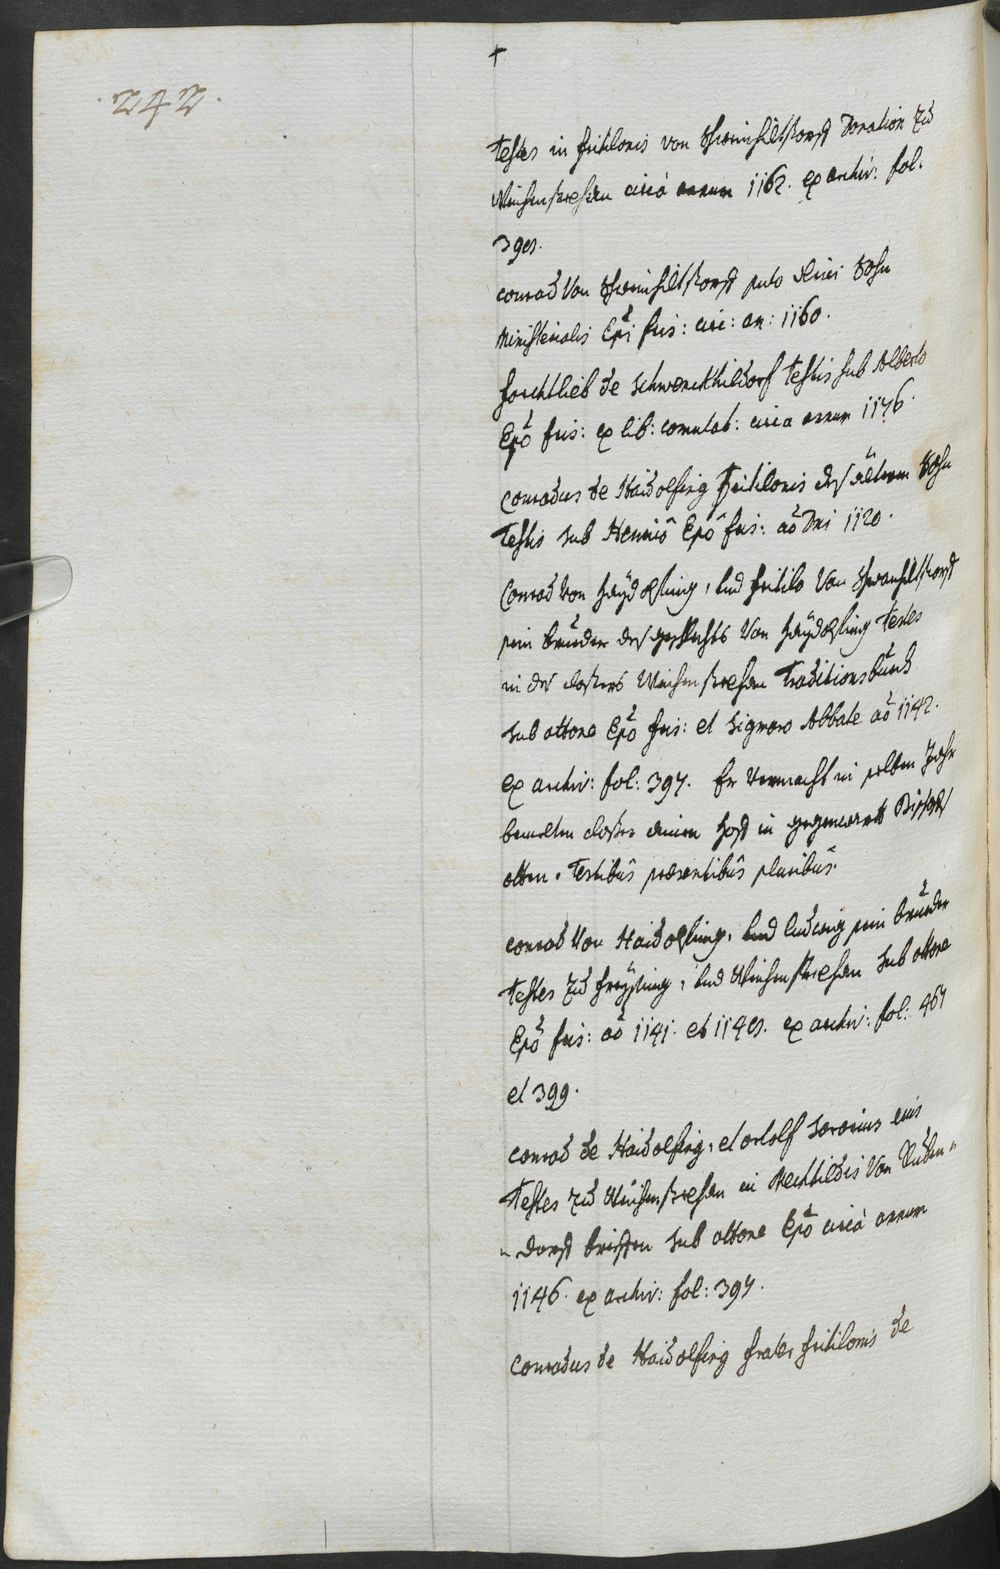 +
·242·
testes in fritilonis von Schwinhiltstorff Donation zu
Weichenstephen circà annum 1162. ex archiv: fol:
399.
conrad von Schwinhiltstorff puto Sohn
ministerialis Epi fris: circ: an: 1160.
forchtlieb de Schwenckhildorf testis sub Alberto
Epo fris: ex lib: comutat: circa annum 1176.
conradus de Haidolfing fritilonis des ältern Sohn
testis sub Henrico Epo fris: ao Dni 1120.
Conrad von Haÿdolfing, und fritilo von Schwanhiltstorff
sein brueder des geschlechts von Haÿdolfing testes
in des closters Weichenstephen Traditionsbuech
sub ottone Epo fris: et Sigmaro Abbate ao 1142.
ex archiv: fol: 397. Er vermacht in selben Jahr
bemelten closter einen hoff in gegenwarth Bischoffs
otten. testibus praesentibus pluribus.
conrad von Haidolfing, und ludwig sein brueder
testes zu freÿsing, und Weichenstephen sub ottone
Epo fris: ao 1141. et 1149. ex archiv: fol: 467
et 399.
conrad de Haidolfing, et ortolf sororius eius
testes zu Weichenstephen in Mechtildis von Ruden-
-dorff brieffen sub ottone Epo circà annum
1146. ex archiv: fol: 397.
Conradus de Haidolfing frater fritilonis de